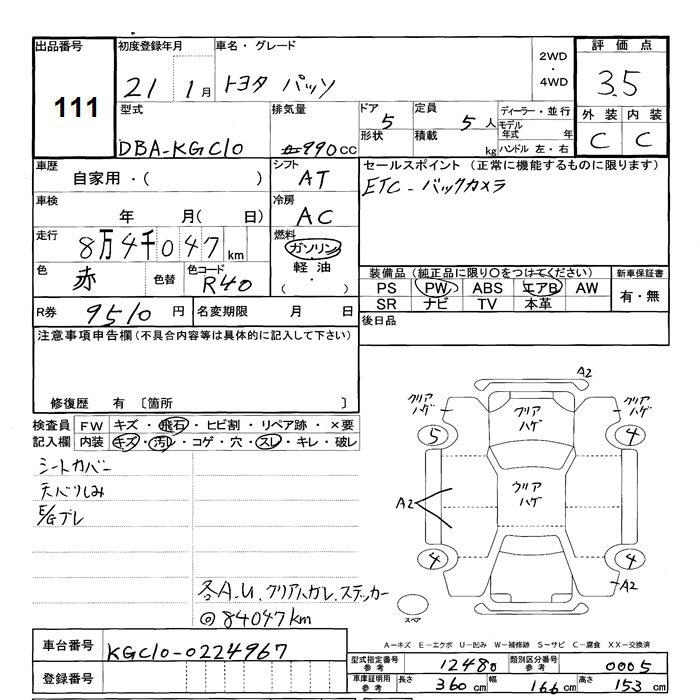 出品番号 初度登録年月 車名・グレード 2WD・4WD 評価点
111 21 1月 トヨタ パッソ 3.5
型式 排気量 ドア 5 定員 5人 ディーラー・並行 外装 内装
DBA-KGC10 990cc 形状 積載 kg モデル年式 年 C C
ハンドル 左・右
車歴 シフト セールスポイント(正常に機能するものに限ります)
自家用・( ) AT ETC-バックカメラ
車検 冷房
年 月( 日) AC
走行 燃料
8万4千047km ガソリン
軽油
( ・ )
色 赤 色替 色コード R40
装備品(純正品に限り○をつけてください) 新車保証書
PS PW ABS エアB AW 有・無
SR ナビ TV 本革
R券 9510円 名変期限 月 日 後日品
注意事項申告欄(不具合内容等は具体的に記入して下さい)
修復歴 有 〔箇所 〕
検査員 FW キズ・飛石・ヒビ割・リペア跡・×要
記入欄 内装 キズ・汚レ・コゲ・穴・スレ・キレ・破レ
シートカバー
天バリしみ
E/Gブレ
A2
クリアハゲ クリアハゲ クリアハゲ
5 4
A2 クリアハゲ
4 4
A2
スペア
各A.U.クリアハガレ.ステッカー
◎84047km
A-キズ E-エクボ U-凹み W-補修跡 S-サビ C-腐食 XX-交換済
車台番号 KGC10-0224967
型式指定番号 参考 12480 類別区分番号 参考 0005
登録番号
車庫証明用 参考 長さ 360cm 幅 166cm 高さ 153cm